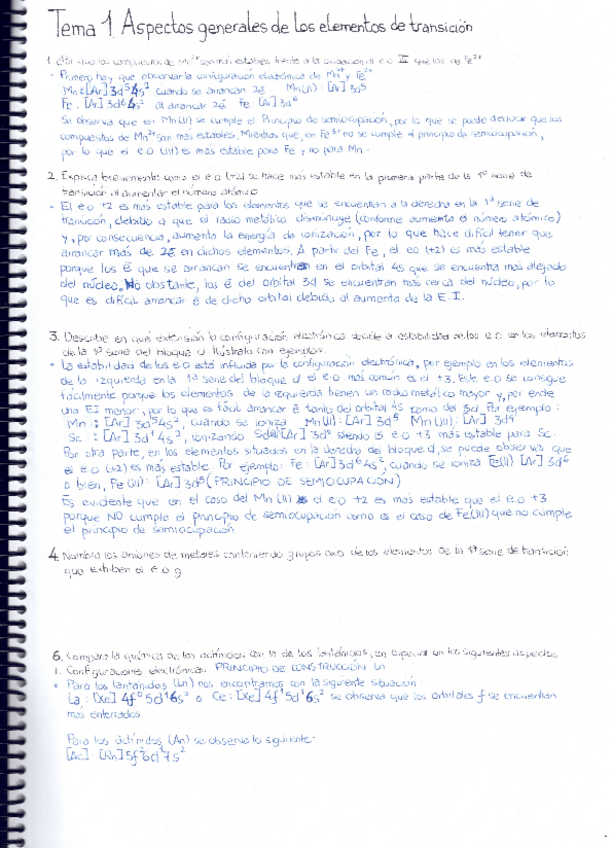 Tema 1. Aspectos generales de los elementos de transición
1. ¿Por qué los compuestos de Mn²⁺ son más estables frente a la oxidación al e.o III que los de Fe²⁺
• Primero hay que observar la configuración electrónica de Mn²⁺ y Fe²⁺
Mn: [Ar] 3d⁵4s² cuando se arrancan 2ē Mn(II): [Ar] 3d⁵
Fe: [Ar] 3d⁶4s² al arrancar 2ē Fe [Ar] 3d⁶
Se observa que en Mn(II) se cumple el Principio de semiocupación, por lo que se puede derivar que los
compuestos de Mn²⁺ son más estables. Mientras que, en Fe³⁺ no se cumple el principio de semiocupación,
por lo que el e.o (III) es más estable para Fe y no para Mn.
2. Explica brevemente como el e.o (+2) se hace más estable en la primera parte de la 1ª serie de
transición al aumentar el número atómico
• El e.o +2 es más estable para los elementos que se encuentran a la derecha en la 1ª serie de
transición, debido a que el radio metálico disminuye (conforme aumenta el número atómico)
y, por consecuencia, aumenta la energía de ionización, por lo que hace difícil tener que
arrancar más de 2ē en dichos elementos. A partir del Fe, el e.o (+2) es más estable
porque los ē que se arrancan se encuentran en el orbital 4s que se encuentra más alejado
del núcleo. No obstante, los ē del orbital 3d se encuentran más cerca del núcleo, por lo
que es difícil arrancar ē de dicho orbital debido al aumento de la E.I.
3. Describe en que extensión la configuración electrónica decide la estabilidad de los e.o en los elementos
de la 1ª serie del bloque d. Ilústralo con ejemplos.
• La estabilidad de los e.o está influida por la configuración electrónica, por ejemplo en los elementos
de la izquierda en la 1ª serie del bloque d el e.o más común es el +3. Este e.o se consigue
fácilmente porque los elementos de la izquierda tienen un radio metálico mayor y, por ende
una EI menor, por lo que es fácil arrancar ē tanto del orbital 4s como del 3d. Por ejemplo:
Mn: [Ar] 3d⁵4s², cuando se ioniza Mn(II): [Ar] 3d⁵ Mn(III): [Ar] 3d⁴
Sc: [Ar] 3d¹4s², ionizando [Ar] 3d⁰ siendo el e.o +3 más estable para Sc.
Por otra parte, en los elementos situados en la derecha del bloque d, se puede observar que
el e.o (+2) es más estable. Por ejemplo: Fe: [Ar] 3d⁶4s², cuando se ioniza Fe(II) [Ar] 3d⁶
o bien, Fe(III): [Ar] 3d⁵ (PRINCIPIO DE SEMIOCUPACIÓN)
Es evidente que en el caso del Mn(II) el e.o +2 es más estable que el e.o +3
porque NO cumple el principio de semiocupación como es el caso de Fe(II) que no cumple
el principio de semiocupación
4. Nombra los aniones de metales conteniendo grupos oxo de los elementos de la 1ª serie de transición
que exhiben el e.o g
6. Compara la química de los actínidos con la de los lantánidos, en especial en los siguientes aspectos
1. Configuraciones electrónicas. PRINCIPIO DE CONSTRUCCIÓN Ln
• Para los lantánidos (Ln) nos encontramos con la siguiente situación:
La: [Xe] 4f⁰5d¹6s² o Ce: [Xe] 4f¹5d¹6s² se observa que los orbitales f se encuentran
más enterrados
Para los actínidos (An) se observa lo siguiente:
[Ac] [Rn] 5f 6d 7s²